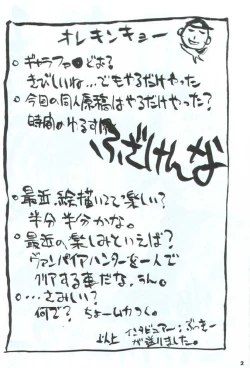 オレキンキョー
○ギャラファ●どお?
きびしいね…でもやるだけやった
○今回の同人原稿はやるだけやった?
時間のゆるす限
ふざけんな
○最近、絵描いてて楽しい?
半分半分かな。
○最近の楽しみといえば?
ヴァンパイアハンターを一人で
クリアする事だな、うん。
○…さみしい?
何で? ちょームカつく。
以上 インタビュアー:ぶっきー
が送りました。
3